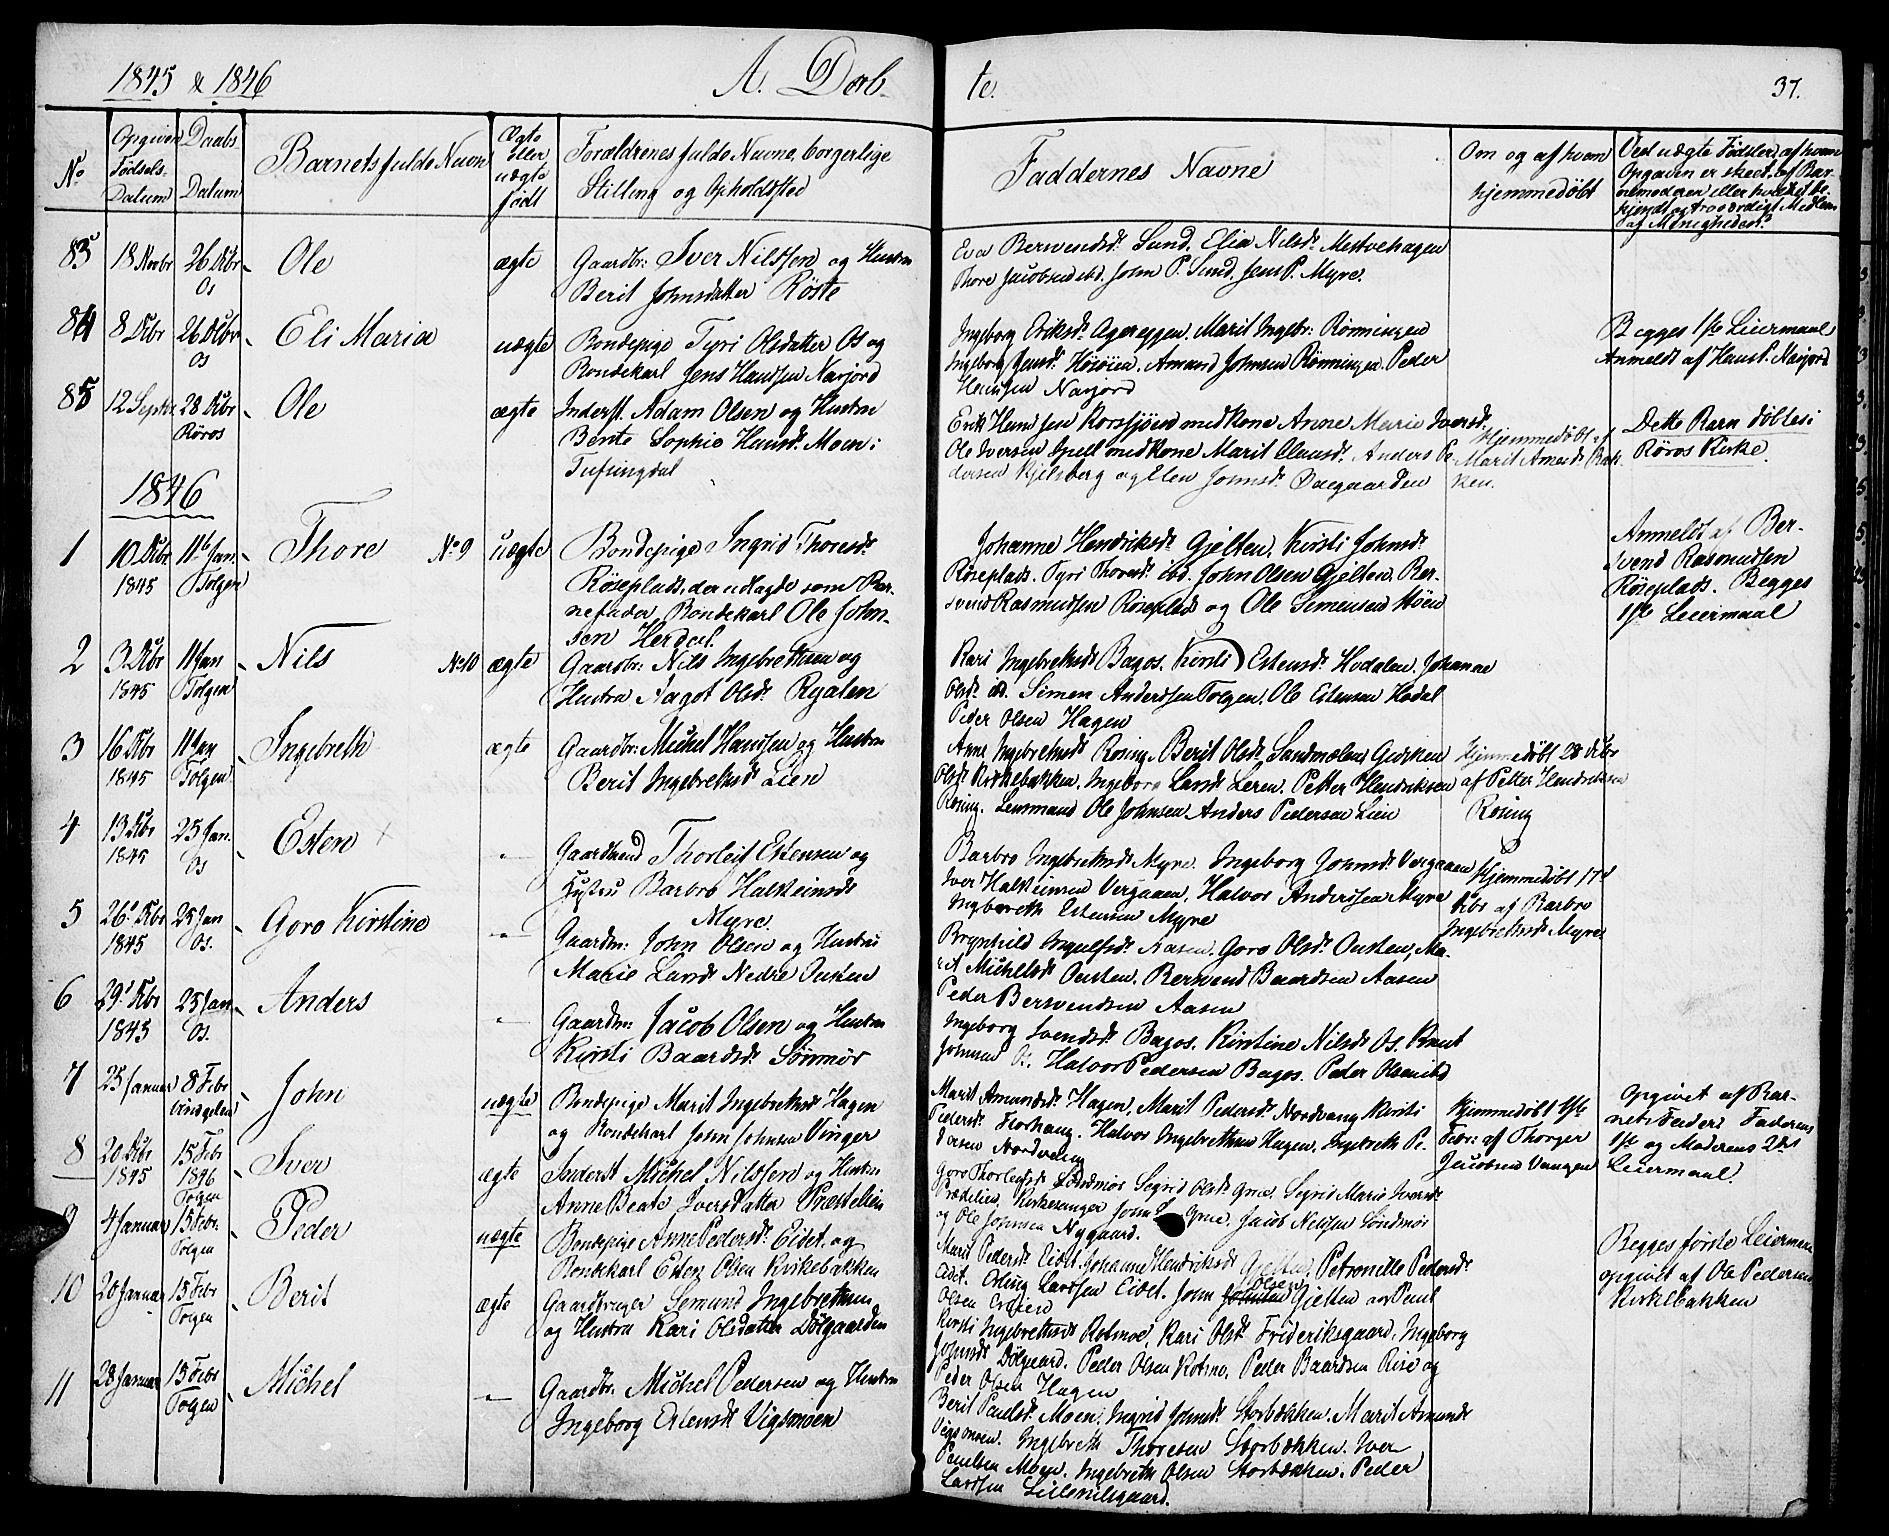 1845 & 1846 A. Døb- te. 37.
No
Opgiven Fødsels. Datum
Daabs Datum
Barnets fulde Navn
Ægte Eller uægte født
Forældrenes fulde Navne, borgerlige Stilling og Opholdsted
Faddernes Navne
Om og af hvem hjemmedøbt
Ved uægte Fødsler, af hvem
Opgaven er skeet, af Bar-
nemoderen eller hvilket be-
kjendt og troværdigt Medlem
af Menigheden.
83 18 Novbr 26 Dcbr Os Ole ægte
Gaardbr: Iver Nilssen og Hustru
Berit Johnsdatter Röste
Eva Berwendsdr Sund. Elia Nilsdr
Thore Jacobsen ibd. John P. Sund, Jens P. Myre.
84 8 Dcbr 26 Dcbr Os Eli Maria uægte
Bondepige Tyri Olsdatter Os og
Bondekarl Jens Hansen Narjord
Ingeborg Eriksdr Agereggen, Marit Ingebr: Rönningen
Ingeborg Jensdr Amund Johnsen Rönningen. Peder
Hansen Narjord
Begges 1ste Leiermaal
Anmeldt af Hans P. Narjord
85 12 Septbr 28 Dcbr Röros Ole ægte
Inderst. Adam Olsen og Hustru
Bente Sophie Hansdr Moen i
Tufsingdal
Erik Hansen Korssjöen med Kone Anne Marie Iversdr
Ole Iversen Spell med Kone Marit Olausdr. Anders Pe-
dersen Kjelsberg og Ellen Johnsdr Ovegaarden
Hjemmedöbt af
Marit Amundsdr Bak-
ken.
Dette Barn döbtes i
Röros Kirke.
1846
1 10 Dcbr 1845 11te Jan. Tolgen Thore No 9 uægte
Bondepige Ingrid Thoresdr
Röseplads, der udlagde som Bar-
nefader Bondekarl Ole John-
sen Herdal.
Johanne Hendriksdr Gjelten, Kirsti Johnsdr
Röseplads. Tyri Thoresdr ibd. John Olsen Gjelten. Ber-
svend Rasmussen Röseplads og Ole Simensen Moen
Anmeldt af Ber-
svend Rasmussen
Röseplads. Begges
1ste Leiermaal
2 3 Dcbr 1845 11 Jan Tolgen Nils No 10 ægte
Gaardbr: Nils Ingebretsen og
Hustru Aagot Olsdr Ryalen
Kari Ingebretsdr Bagos. Kirsti Estensdr Hodalen. Johanne
Olsdr ib. Simen Andersen Tolgen. Ole Estensen Hodal
Peder Olsen Hagen
3 16 Dcbr 1845 11 Jan Tolgen Ingebreth ægte
Gaardbr: Michel Hansen og Hustru
Berit Ingebretsdr Lien
Ane Ingebretsdr Rosing. Berit Olsdr Sandmælen Gurken
Olsdr Kirkebakken, Ingeborg Larsdr Leren. Petter Hendriksen
Rosing. Lensmand Ole Johnsen. Anders Pedersen Lien
Hjemmedöbt 28 Dcbr
af Petter Hendriksen
Rosing
4 13 Dcbr 1845 25 Jan. Os Esten "
Gaardmd Thorleif Estensen og
Hustru Barbro Halsteinsdr
Myre.
Barbro Ingebretsdr Myre. Ingeborg Johnsdr Vergaaen
Iver Halsteinsen Vergaaen, Halvor Andersen Myre
Ingebreth Estensen Myre
Hjemmedöbt 17d
Dcbr af Barbro
Ingebretsdr Myre
5 26d Dcbr 1845 25 Jan Os. Goro Kirstine "
Gaardm: John Olsen og Hustru
Marie Larsdr Nedre Ousten
Brynhild Ingulfsdr Aasen. Goro Olsdr Ousten, Ma-
rit Michelsdr Ousten. Berwend Baardsen Aasen
Peder Berwendsen Aasen
6 29d Dcbr 1845 25 Jan Os. Anders "
Gaardm: Jacob Olsen og Hustru
Kirsti Baardsdr Sönmör
Ingeborg Svendsdr Bagos. Kirstine Nilsdr Os. Knut
Johnsen Os. Halvor Pedersen Bagos. Peder Olsen ibd
7 25 Januar 8 Febr John uægte
Bondepige Marit Ingebretsdr Hagen
og Bondekarl John Johnsen Vinger
Marit Amundsdr Hagen, Marit Pedersdr Nordvang Kirsti
Pedersdr Halvor Ingebretsen Hagen, Ingebreth Pe-
dersen Nordvang
Hjemmedöbt 1ste
Febr: af Thorger
Jacobsen Vangen
Opgivet af Bar-
nets Fader. Faderens
1ste og Moderens 2det
Leiermaal.
8 20 Dcbr 1845 15 Febr 1846 Tolgen Iver ægte
Inderst Michel Nilsen og Hustru
Anne Beate Iversdatter Præstelien
Goro Thorleifsdr Söndmör Segrid Olsdr Grue. Segrid Marie Iversdr
Prædelien, Kirkesanger John Grue, Jacob Nilssen Söndmör
og Ole Johnsen Nygaard.
9 4 Januar 15 Febr. Tolgen Peder uægte
Bondepige Anne Pedersdr Eidet. og
Bondekarl Esten Olsen Kirkebakken
Marit Pedersdr Eidet Johanne Hendriksdr Gjelten, Petronille Pedersdr
Eidet. Erling Larssen Eidet. John Olsen Gjelten og Poul
Olsen
Begges förste Leiermaal
opgivet af Ole Pedersen
Kirkebakken
10 20 Januar 15 Febr Tolgen Berit ægte
Gaardbruger Semund Ingebretsen
og Hustru Kari Olsdatter Dölgaarden
Kirsti Ingebretsdr Kotmoe, Kari Olsdr Frideriksgaard, Ingeborg
Johnsdr Dölgaard. Peder Olsen Kotmo. Peder Baardsen Rise og
Peder Olsen Hagen
11 28 Januar 15 Febr Tolgen Michel "
Gaardbr: Michel Pedersen og Hustru
Ingeborg Estensdr Vigsmoen
Berit Paulsdr Moen, Ingrid Johnsdr Storbækken. Marit Amunds
Vigsmoen. Ingebreth Thoresen Storbækken. Iver
Paulsen Moen. Ingebreth Olsen Storbækken. Peder
Larssen Lillenilsgaard.